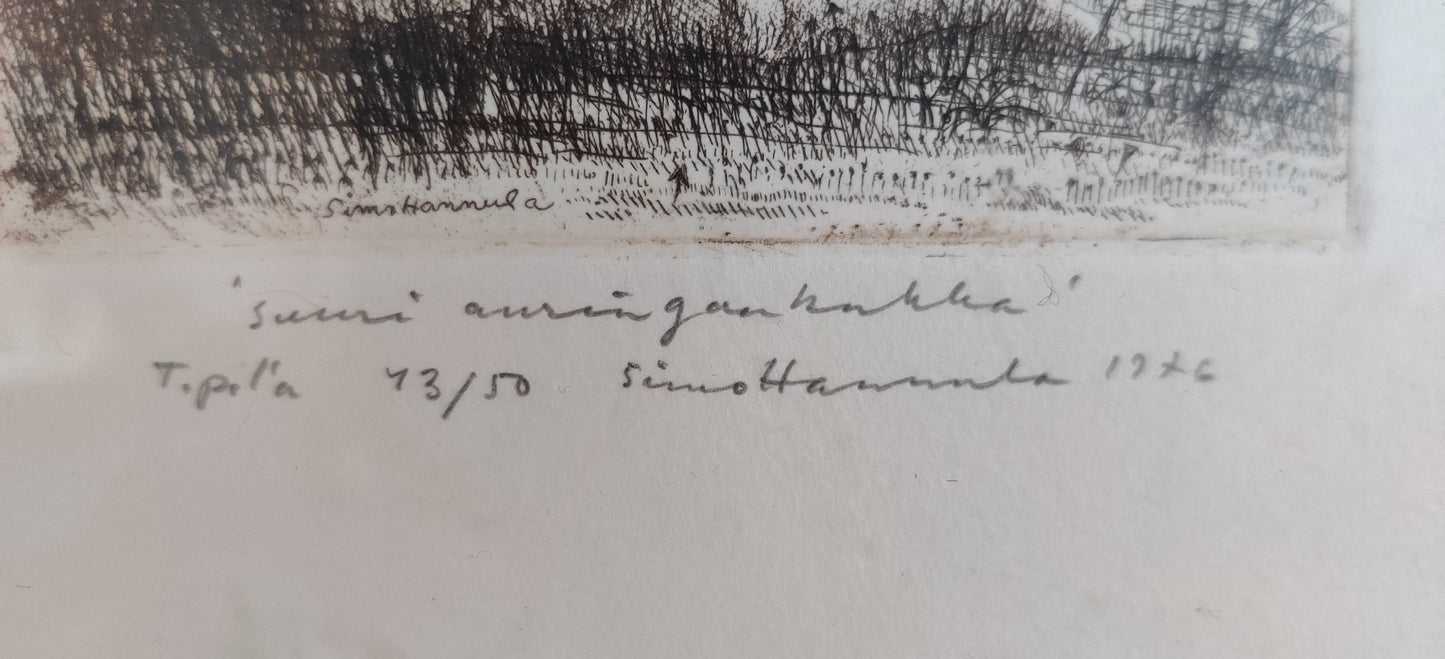 SimoHannula
'Suuri auringonkukka'
T.pl'a 43/50 SimoHannula 1976